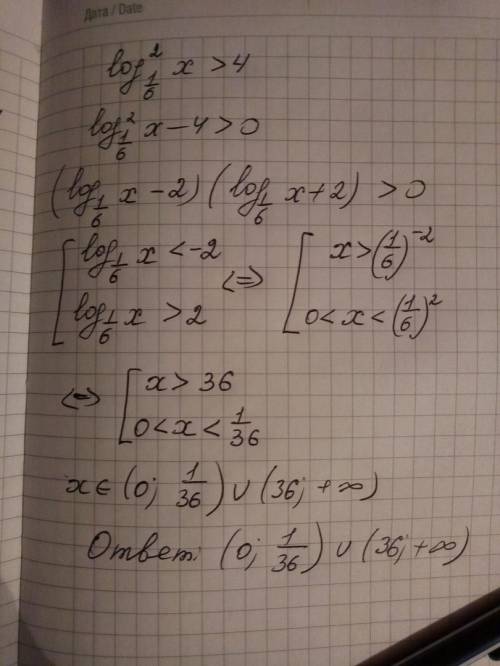 Дата / Date
log²_{1/6} x > 4
log²_{1/6} x − 4 > 0
(log_{1/6} x − 2) (log_{1/6} x + 2) > 0
[ log_{1/6} x < −2 <=> [ x > (1/6)^{−2}
log_{1/6} x > 2 0 < x < (1/6)²
<=> [ x > 36
0 < x < 1/36
x ∈ (0; 1/36) ∪ (36; +∞)
Ответ: (0; 1/36) ∪ (36; +∞)